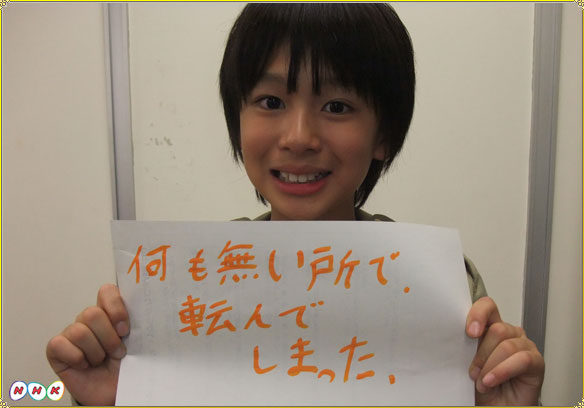 何も無い所で.
転んで
しまった.
NHK